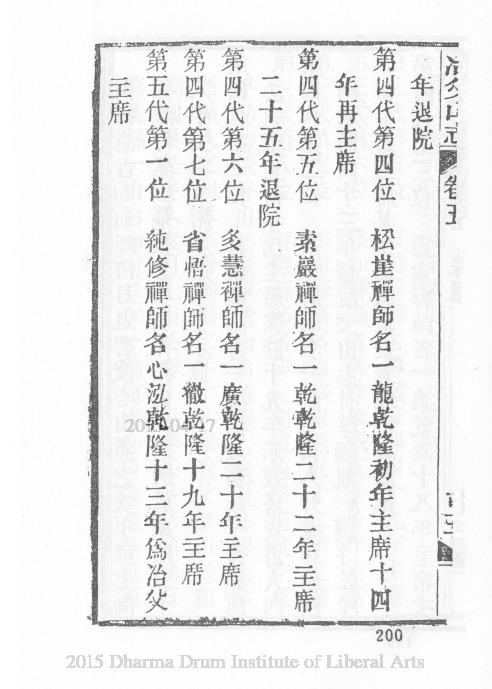 冶父山志 卷五
年退院
第四代第四位 松崖禪師名一龍乾隆初年主席十四
年再主席
第四代第五位 素巖禪師名一乾乾隆二十二年主席
二十五年退院
第四代第六位 㣲慧禪師名一廣乾隆二十年主席
第四代第七位 省悟禪師名一徹乾隆十九年主席
第五代第一位 純修禪師名心泓乾隆十三年爲冶父
主席
200
2015 Dharma Drum Institute of Liberal Arts